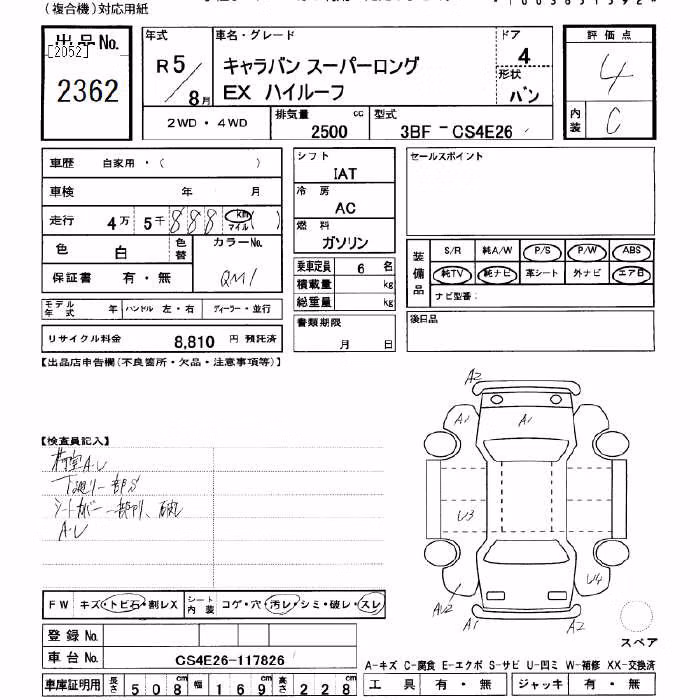 (複合機)対応用紙
出品No.
[2052]
2362
年式
R5/8月
車名・グレード
キャラバン スーパーロング
EX ハイルーフ
ドア
4
形状
バン
評価点
4
内装
C
2WD・4WD
排気量
2500 cc
型式
3BF-CS4E26
車歴 自家用・( )
車検 年 月
走行 4万 5千 888 km マイル ( )
色 白
色替
カラーNo.
QM1
保証書 有・無
モデル年式 年
ハンドル 左・右
ディーラー・並行
リサイクル料金 8,810 円 預託済
シフト
IAT
冷房
AC
燃料
ガソリン
乗車定員 6 名
積載量 kg
総重量 kg
書類期限
月 日
セールスポイント
装備品
S/R 純A/W P/S P/W ABS
純TV 純ナビ 革シート 外ナビ エアB
ナビ型番:
後日品
【出品店申告欄(不良箇所・欠品・注意事項等)】
【検査員記入】
荷室A.U
下廻り一部S
シートカバー一部切り、破れ
A.U
A2
A1
A1
U3
AU2
U4
A1
A2
スペア
FW キズ・トビ石・割レX
シート内装 コゲ・穴・汚レ・シミ・破レ・スレ
登録No.
車台No. CS4E26-117826
車庫証明用 長さ 508cm 幅 169cm 高さ 228cm
A-キズ C-腐食 E-エクボ S-サビ U-凹ミ W-補修 XX-交換済
工具 有・無 ジャッキ 有・無